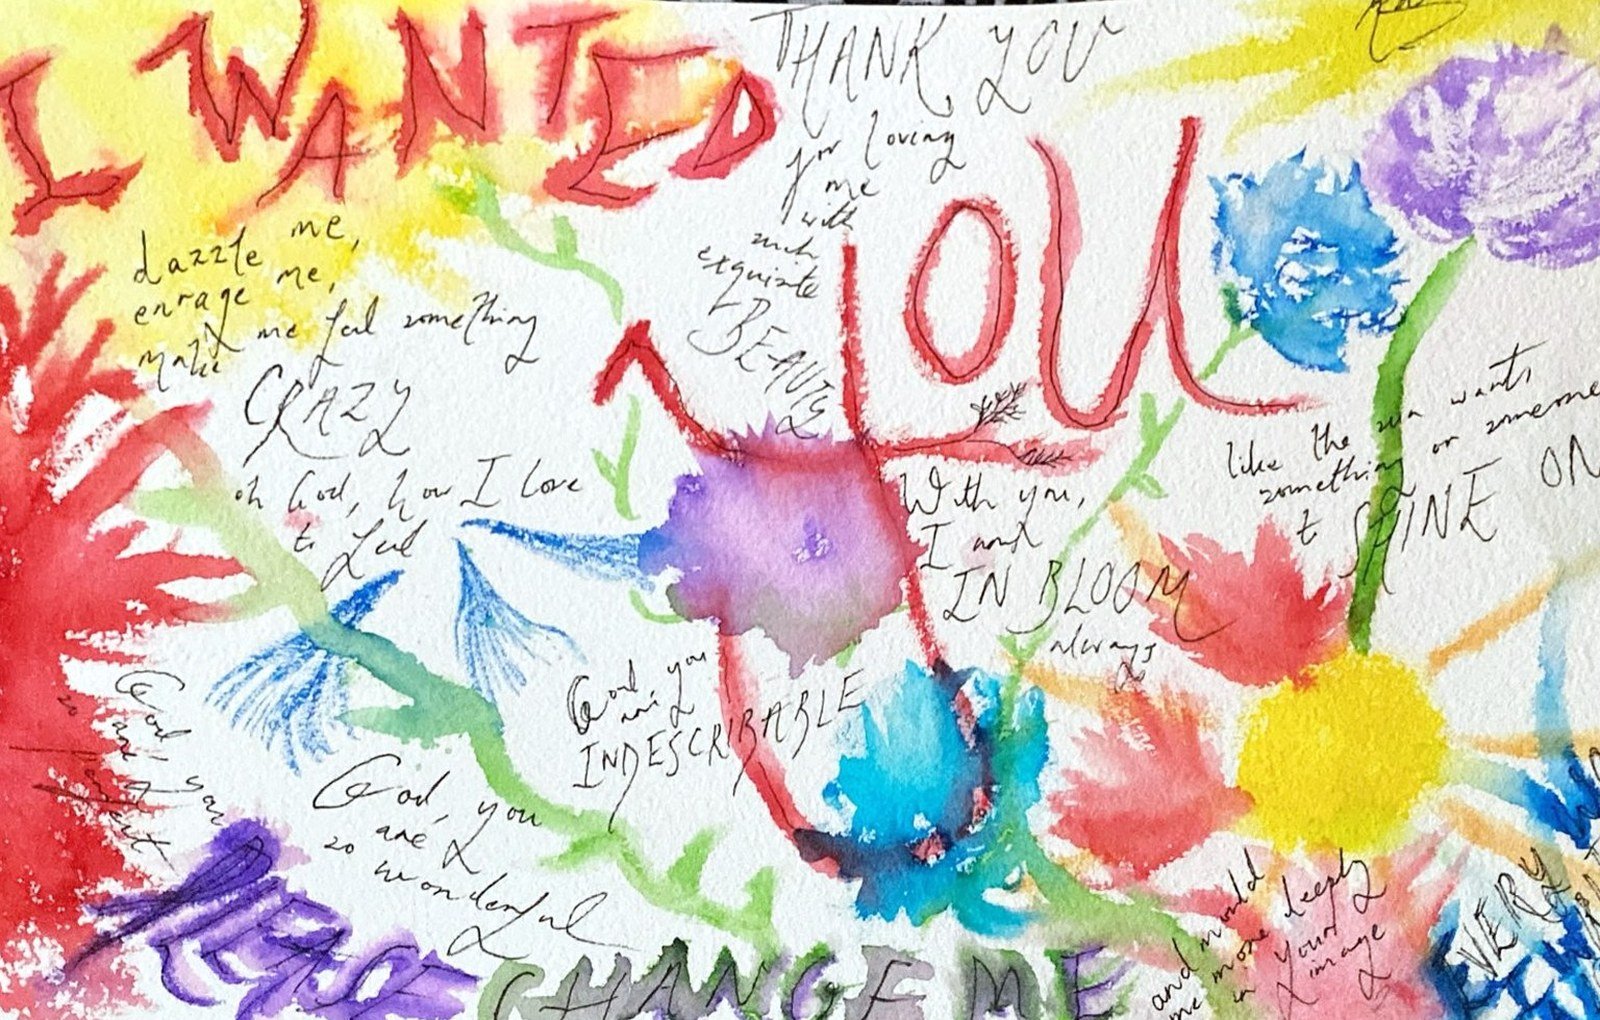 I WANTED
YOU
THANK YOU
for loving
me
with
such
exquisite
BEAUTY
dazzle me,
enrage me,
make me feel something
CRAZY
oh God, how I love
to feel
With you,
I am
IN BLOOM
always
like the sun wants
something or someone
to SHINE ON
God you
are
INDESCRIBABLE
God you
are
so
perfect
God, you
are
so
wonderful
PLEASE CHANGE ME
and mould
me more deeply
in your
image
VERY